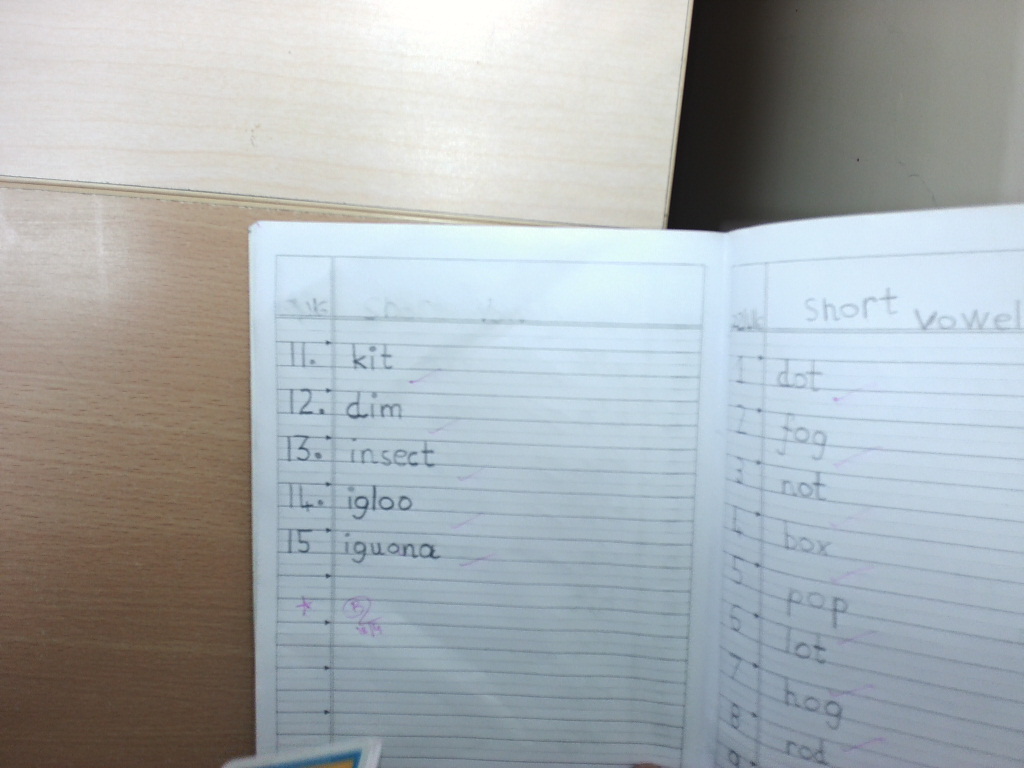 11. kit
12. dim
13. insect
14. igloo
15 iguana
short vowel
1 dot
2 fog
3 not
4 box
5 pop
6 lot
7 hog
8 rod
9.